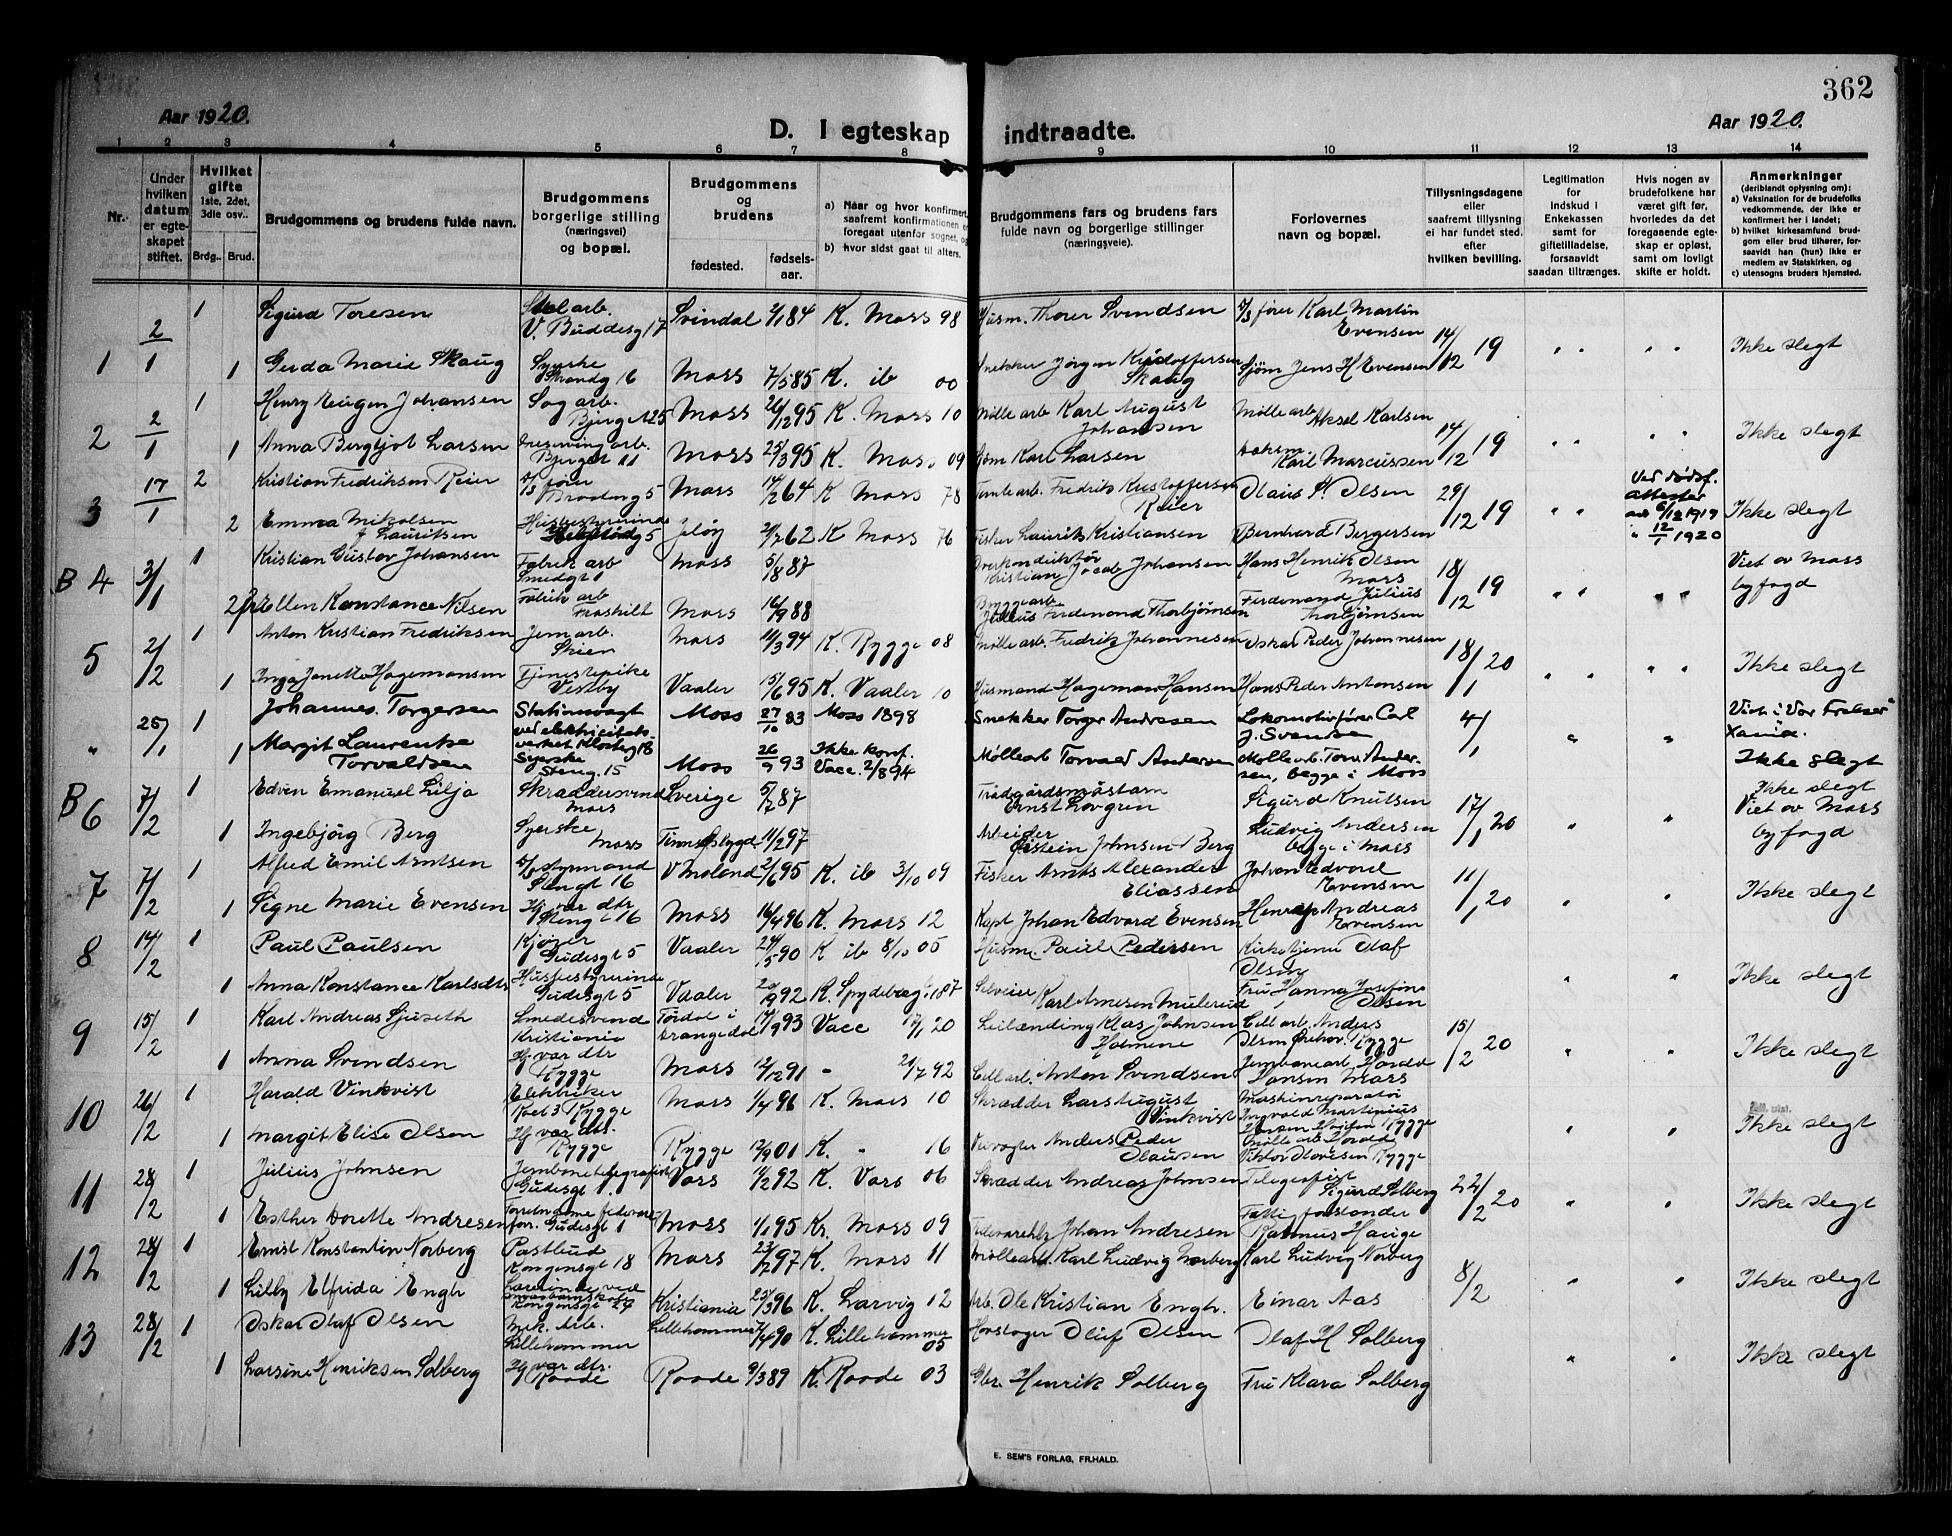 362
Aar 1920.
D. I egteskap indtraadte.
Aar 1920.
1 2 3 4 5 6 7 8 9 10 11 12 13 14
Nr.
Under hvilken datum er egteskapet stiftet.
Hvilket gifte 1ste, 2det, 3die osv..
Brdg.. Brud.
Brudgommens og brudens fulde navn.
Brudgommens borgerlige stilling (næringsvei) og bopæl.
Brudgommens og brudens
fødested. fødselsaar.
a) Naar og hvor konfirmert, saafremt konfirmationen er foregaat utenfor sognet, og
b) hvor sidst gaat til alters.
Brudgommens fars og brudens fars fulde navn og borgerlige stillinger (næringsveie).
Forlovernes navn og bopæl.
Tillysningsdagene eller saafremt tillysning ei har fundet sted, efter hvilken bevilling.
Legitimation for indskud i Enkekassen samt for giftetilladelse, forsaavidt saadan tiltrænges.
Hvis nogen av brudefolkene har været gift før, hvorledes da det foregaaende egteskap er opløst, samt om lovligt skifte er holdt.
Anmerkninger (deriblandt oplysning om):
a) Vaksination for de brudefolks vedkommende, der ikke er konfirmert her i landet;
b) hvilket kirkesamfund brudgom eller brud tilhører, forsaavidt han (hun) ikke er medlem av Statskirken, og
c) utensogns bruders hjemsted.
1 2/1 1 Sigurd Toresen arb. V. Buddesg 17 Svindal 2/1 84 K. Moss 98 Husm. Thorer Svendsen D/S fører Karl Martin Evensen 14/12 19 " " " " Ikke slegt
1 Gerda Marie Skaug Syerske Strandg 16 Moss 7/5 85 K. ib 00 Snekker Jørgen Kristoffersen Skaug Sjøm Jens H Evensen
2 2/1 1 Henry Eugen Johansen Sag arb. Moss 26/12 95 K. Moss 10 Mølle arb Karl August Johansen Mølle arb Aksel Karlsen 14/12 19 " " " " Ikke slegt
1 Anna Bergljot Larsen Preserving arb. Moss 25/3 95 K. Moss 09 Sjøm Karl Larsen Karl Marcussen
3 17/1 2 Kristian Fredriksen Reier D/S fører 5 Moss 14/2 64 K Moss 78 Tomte arb. Fredrik Kristoffersen Reier Olaus A. Olsen 29/12 19 " " Ved dødsf. attester ad 6/12 1919 " 12/1 1920 Ikke slegt
2 Emma Mikalsen f Lauritsen Husbestyrerinde 5 Jeløy 62 K Moss 76 Fisker Laurits Kristiansen Bernhard Bergersen
B 4 3/1 1 Kristian Gustav Johansen Fabrik arb Smedgt 1 Moss 5/8 87 Kristian Jacob Johansen Hans Henrik Olsen Moss 18/12 19 " " " " Viet av Moss byfogd
2 Ellen Konstance Nilsen Fabrik arb Froshilt Moss 16/9 88 Byggearb. Julius Ferdenand Thorbjørnsen Ferdenand Julius Thorbjørnsen
5 21/2 1 Anton Kristian Fredriksen Jernarb. Skien Moss 11/3 94 K. Rygge 08 Mølle arb. Fredrik Johannesen Oskar Peder Johannesen 18/1 20 " " " " Ikke slegt
1 Inga Janette Hagemansen Tjenestepike Vestby Vaaler 15/6 95 K. Vaaler 10 Husmand Hageman Hansen Hans Peder Antonsen
" 25/1 1 Johannes Torgersen Stationsvagt ved elektricitetsverket Klosterg 18 Moss 27/10 83 Moss 1898 Snekker Torger Andresen Lokomotivfører Carl J. Svensen 4/1 " " Viet i "Vor Frelser" Xania.
1 Margit Laurentse Torvaldsen Syerske Steng. 15 Moss 26/9 93 Ikke konf. Vacc. 2/8 94 Møllearb Torvald Andersen Møllearb Torv. Andersen, begge i Moss Ikke slegt
B 6 7/2 1 Edvin Emanuel Lilja Skræddersvend Moss Sverige 5/7 87 Trädgårdsmästarn Ernst Lovgren Sigurd Knutsen 17/1 20 " " Ikke slegt Viet av Moss byfogd
1 Ingebjørg Berg Syerske Moss 11/2 97 Arbeider Eistein Johnsen Berg Ludvig Andersen begge i Moss
7 7/2 1 Alfred Emil Arntsen D/S styrmand Stengt 16 V Moland 2/6 95 K. ib 3/10 09 Fisker Arnts Alexander Eliassen Johan Edvard Evensen 11/1 20 " " Ikke slegt
1 Signe Marie Evensen Hj. var. dtr Steng t 16 Moss 16/4 96 K. Moss 12 Kapt Johan Edvard Evensen Henrik Andreas Evensen
8 14/2 1 Paul Paulsen Kjører Gudesgt 5 Vaaler 24/5 90 K ib 8/10 05 Husm Paul Pedersen Kirketjener Olaf Olsen " " Ikke slegt
1 Anna Konstance Karlsdtr Husbestyrerinde Gudesgt 5 Vaaler 92 K. Spydeberg Selveier Karl Arnesen Mulerud Fru Hanna Josefine Olsen
9 15/2 1 Karl Andreas Sjuseth Smedesvend Kristiania Tørdal i Drangedal 14/1 93 Vacc 17/1 20 Leilænding Klas Johnsen Holmene Cell arb. Anders Olsen Ørehov. Rygge 15/2 20 " " Ikke slegt
1 Anna Svendsen Hj var dtr Rygge Moss 12/12 91 " 21/7 92 Cell arb. Anton Svendsen Jernbanearb. Harald Hansen Moss
10 26/2 1 Harald Vinkvist Elektriker Roed 3 Rygge Moss 1/4 96 K. Moss 10 Skrædder Lars August Vinkvist Maskinreparatør Ingvald Martinius Hansen Rygge " " Ikke slegt
1 Margit Elise Olsen Hj var dtr. Rygge Rygge 12/9 01 K. " 16 Anders Peder Olausen Mølle arb Harald Viktor Olavesen Rygge
11 28/2 1 Julius Johnsen Jernbanetelegrafist Gudesgt 1 Vors 11/2 92 K. Vors 06 Skrædder Andreas Johnsen Telegrafist Sigurd Solberg 22/2 20 " " Ikke slegt
1 Esther Dorette Andresen Gudesgt 1 Moss 1/1 95 Kr. Moss 09 Johan Andresen Fattigforstander Rasmus Hauge
12 28/2 1 Ernst Konstantin Norberg Postbud Kongensgt 18 Moss 23/7 97 K. Moss 11 Møllearb. Karl Ludvig Norberg Karl Ludvig Norberg 8/2 " " Ikke slegt
1 Lilly Elfrida Engh Lærerinde ved Kongensgt 29 Kristiania 23/3 96 K. Larvig 12 Arb. Ole Kristian Engh. Einar Aas
13 28/2 1 Oskar Olaf Olsen Mek. Arb. Lillehammer Lillehammer 7/4 90 K. Lillehammer 05 Olaf Olsen Olaf H Solberg " " Ikke slegt
1 Larsine Henriksen Solberg Hj var dtr. Raade Raade 9/3 89 K. Raade 03 Gbr. Henrik Solberg Fru Klara Solberg
E. SEM'S FORLAG, FR.HALD.